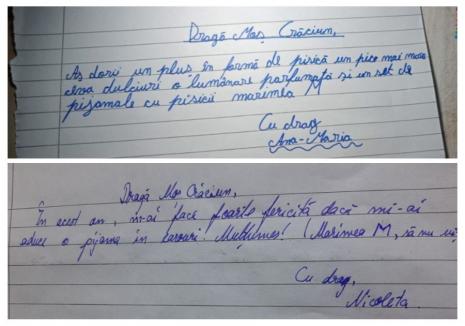 Dragă Moș Crăciun,
Aș dorii un pluș în formă de pisică un pic mai mare
ceva dulciuri o lumânare parfumată și un set de
pijamale cu pisicii marimea M
Cu drag
Ana-Maria
Dragă Mos Crăciun,
În acest an, m-ai face foarte fericită dacă mi-ai
aduce o pijama în carouri! Mulțumesc! (Marimea M, să nu ui
Cu drag,
Nicoleta.